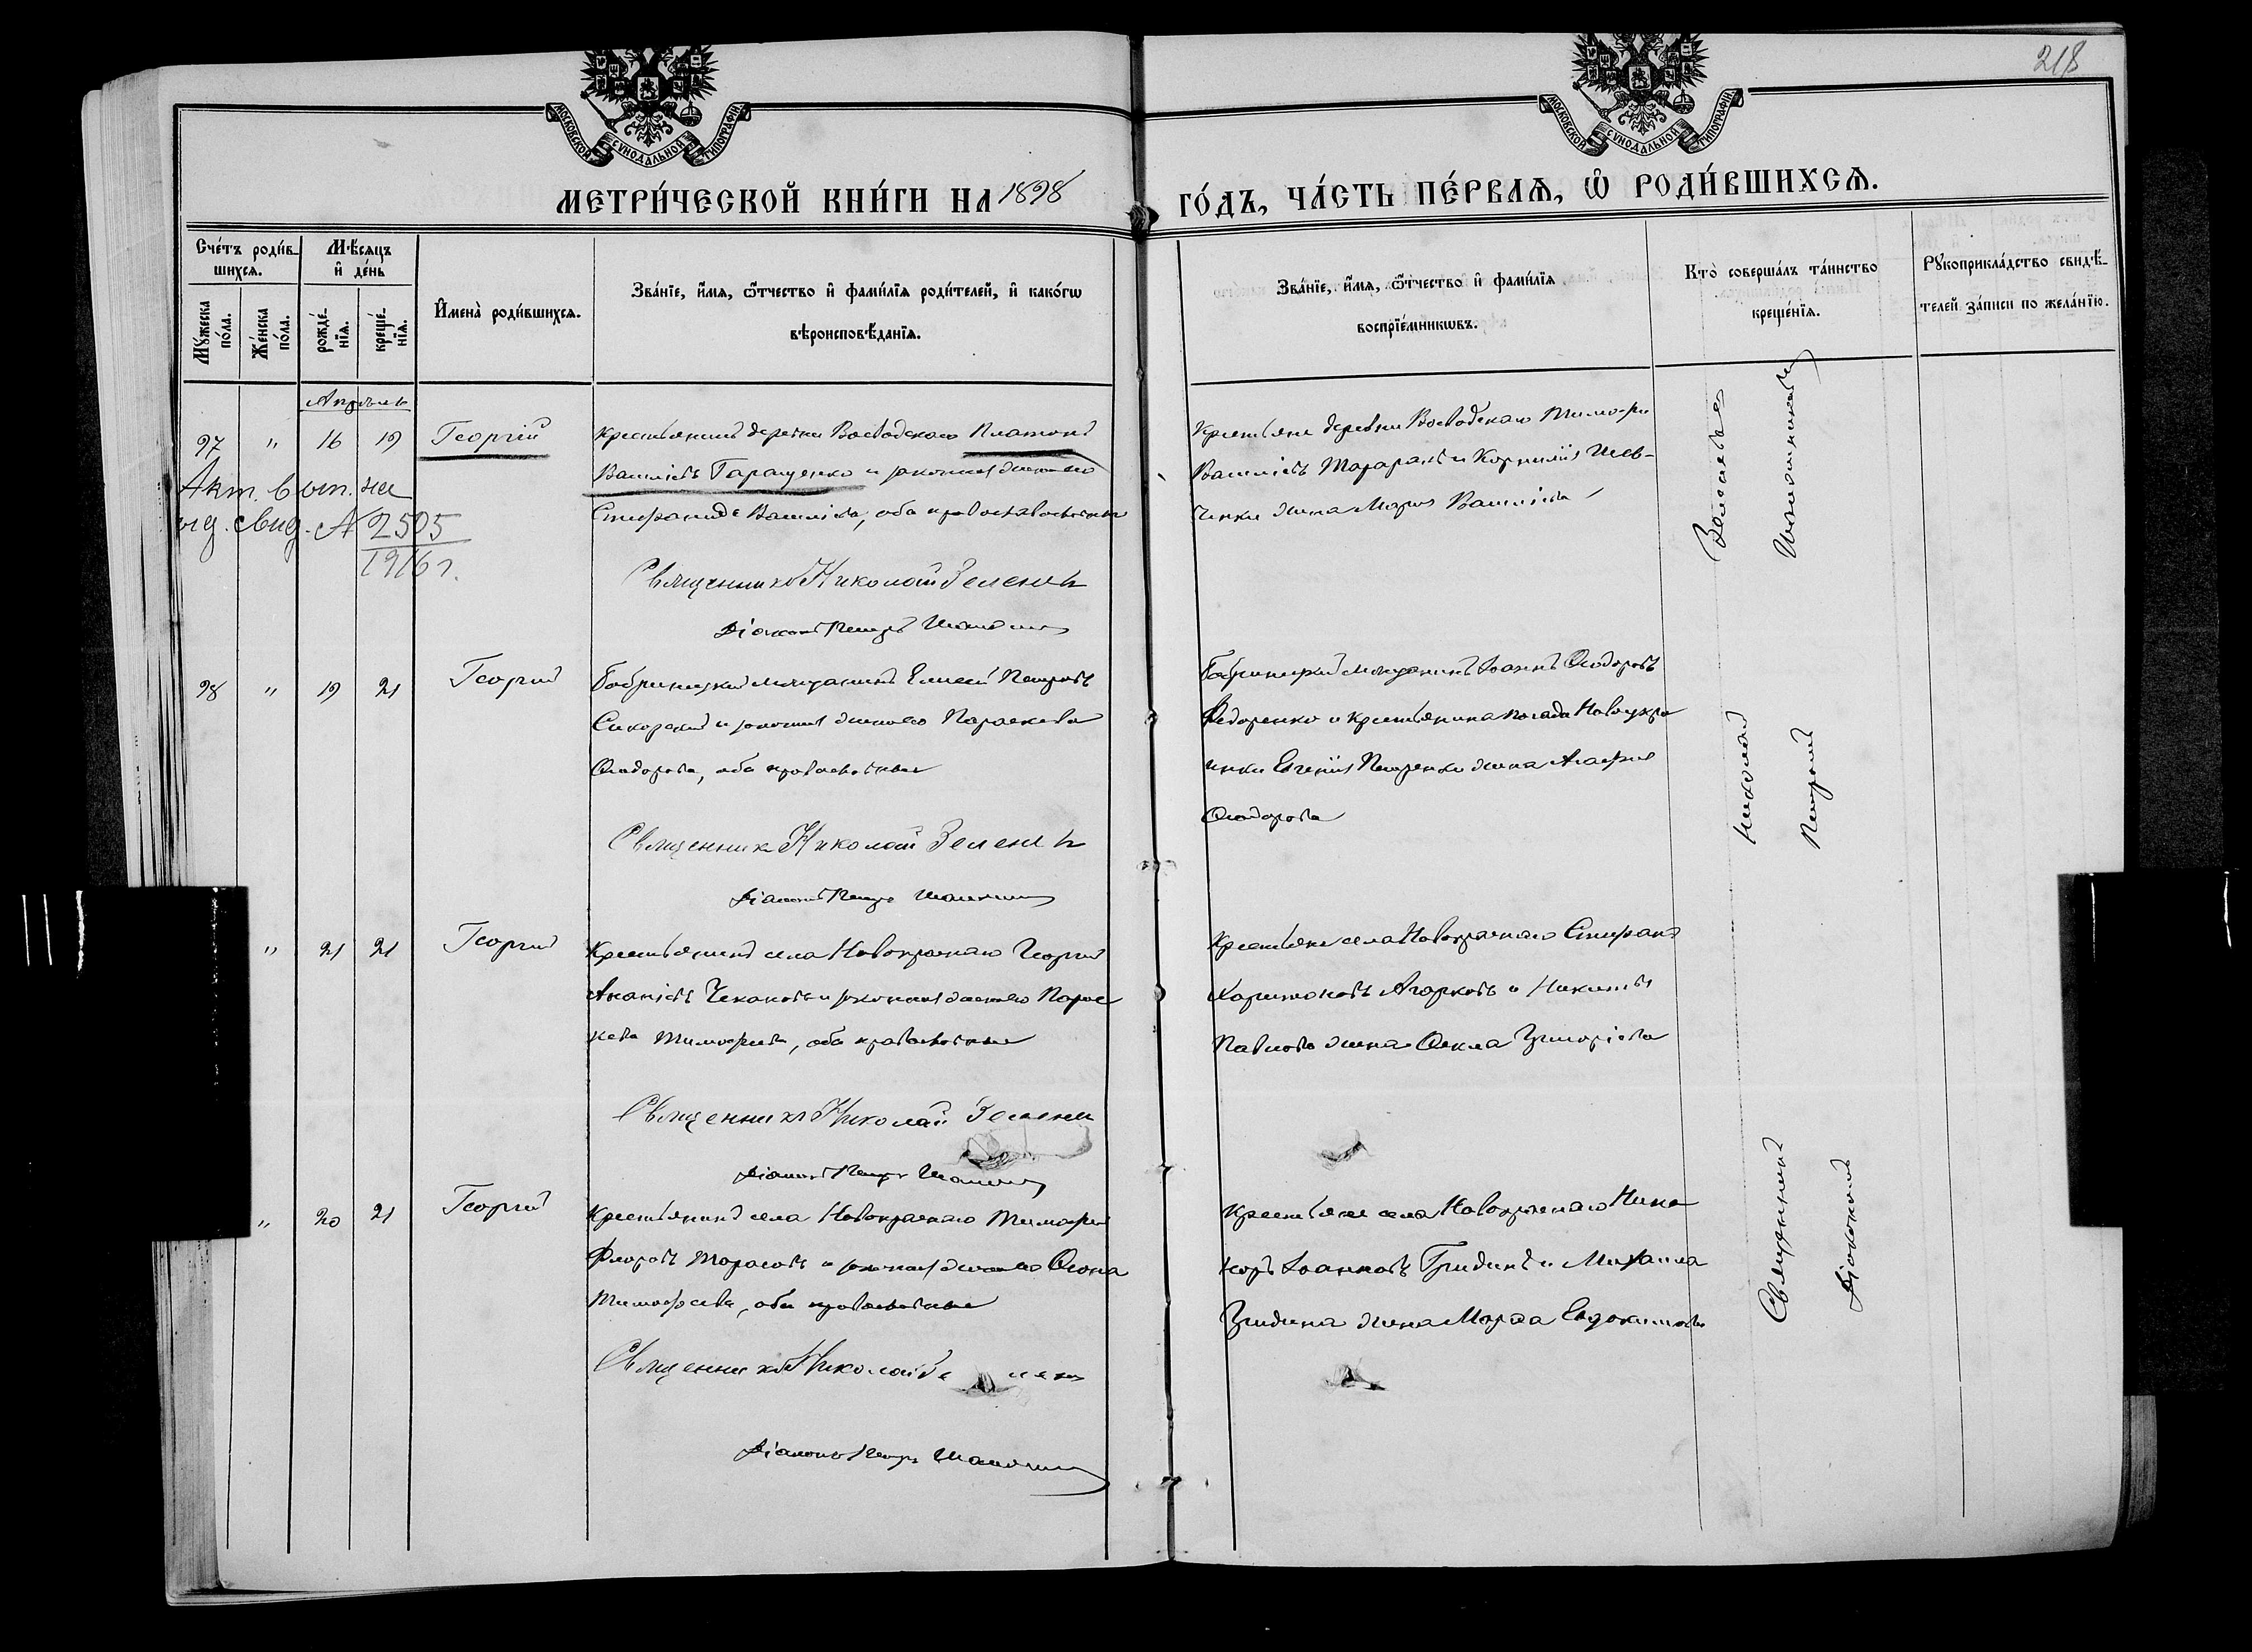 218
МОСКОВСКОЙ СУНОДАЛЬНОЙ ТИПОГРАФІИ
МОСКОВСКОЙ СУНОДАЛЬНОЙ ТИПОГРАФІИ
МЕТРИ́ЧЕСКОЙ КНИ́ГИ НА 1898 ГО́ДЪ, ЧА́СТЬ ПЕ́РВАѦ, Ѡ РОДИ́ВШИХСѦ.
Сче́тъ роди́в-
шихсѧ.
Мꙋ́жеска по́ла.
Же́нска по́ла.
Мѣ́сѧцъ и҆ де́нь
рожде́-нїѧ.
креще́-нїѧ.
И҆мена̀ роди́вшихсѧ.
Зва́нїе, и҆́мѧ, ѻ҆́тчество и҆ фами́лїѧ роди́телей, и҆ како́гѡ
вѣроисповѣ́данїѧ.
Зва́нїе, и҆́мѧ, ѻ҆́тчество и҆ фами́лїѧ
воспрїе́мникѡвъ.
Кто̀ соверша́лъ та́инство
креще́нїѧ.
Рꙋкоприкла́дство свидѣ́-
телей за́писи по жела́нїю.
Апрѣль
97 " 16 19 Георгій
Крестьянинъ деревни Воеводскаго Платонъ
Васильевъ Гаращенко и законная жена его
Стефанида Васильева, оба православные
Акт. выт. на
выд. свид. №2505
1916 г.
Священникъ Николай Зелени
Діаконъ Петръ
Крестьяне деревни Воеводскаго Тимофей
Васильевъ Тараранъ и Корнилія Шев-
ченки жена Марія Васильева
98 " 19 21 Георгій
Бобринецкій мѣщанинъ Елисей Петровъ
Сикорскій и законная жена его Параскева
Ѳеодорова, оба православные
Священникъ Николай Зелени
Діаконъ Петръ
Бобринецкій мѣщанинъ Іоаннъ Ѳеодоровъ
Федоренко и крестьянина посада Новоукра
инки Евгенія Петренки жена Агафія
Ѳеодорова
" 21 21 Георгій
Крестьянинъ села Новокраснаго Георгій
Ананіевъ Чекановъ и законная жена его Парас
кева Тимофеева, оба православные
Священникъ Николай Зелени
Діаконъ Петръ
Крестьяне села Новокраснаго Стефанъ
Харитоновъ Агарковъ и Никиты
Павлова жена Ѳекла Григоріева
" 20 21 Георгій
Крестьянинъ села Новокраснаго Тимофей
Флоровъ Тарасовъ и законная жена его
Тимофеева, оба православные
Священникъ Николай Зелени
Діаконъ Петръ
Крестьяне села Новокраснаго Ника
норъ Іоанновъ Гридинъ и Михаила
Гридина жена Марѳа Евдокимова
Священникъ Николай
Діакономъ Петромъ